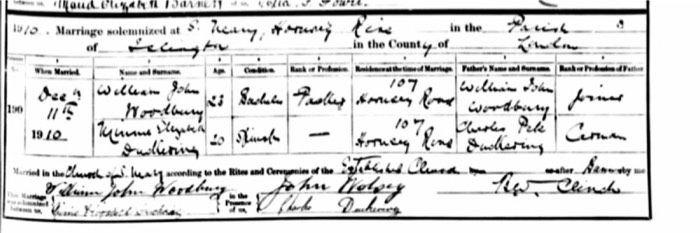 1910. Marriage solemnized at S. Mary, Hornsey Rise in the Parish
of Islington in the County of London
When Married. Name and Surname. Age. Condition. Rank or Profession. Residence at the time of Marriage. Father's Name and Surname. Rank or Profession of Father
190
Dec 11th 1910
William John Woodbury 23 Bachelor 107 Hornsey Road William John Woodbury Joiner
Minnie Elizabeth Duckering 20 Spinster — 107 Hornsey Road Charles Duckering Carman
Married in the Church of S. Mary according to the Rites and Ceremonies of the Established Church or after Banns by me
This Marriage was solemnized between us, William John Woodbury in the Presence of us, John Wolsey
Charles Duckering